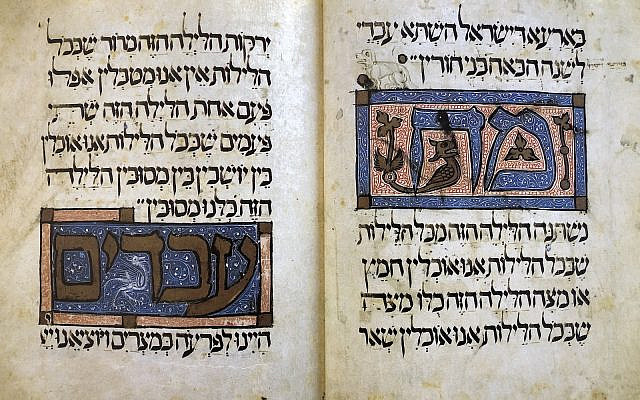 בארעא דישראל השתא עבדי
לשנה הבאה בני חורין
מה
נשתנה הלילה הזה מכל הלילות
שבכל הלילות אנו אוכלין חמץ
או מצה הלילה הזה כלו מצה
שבכל הלילות אנו אוכלין שאר
ירקות הלילה הזה מרור שבכל
הלילות אין אנו מטבלין אפלו
פעם אחת הלילה הזה שתי
פעמים שבכל הלילות אנו אוכלין
בין יושבין בין מסובין הלילה
הזה כלנו מסובין
עבדים
היינו לפרעה במצרים ויוציאנו יי